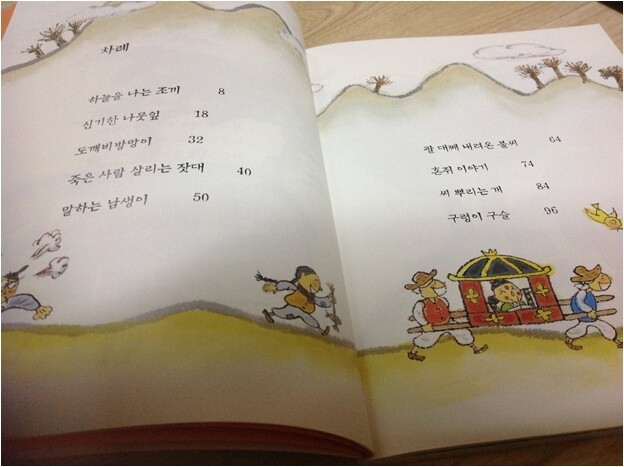 차례
하늘을 나는 조끼 8
신기한 나뭇잎 18
도깨비방망이 32
죽은 사람 살리는 잣대 40
말하는 남생이 50
팔 대째 내려온 불씨 64
혼쥐 이야기 74
씨 뿌리는 개 84
구렁이 구슬 96